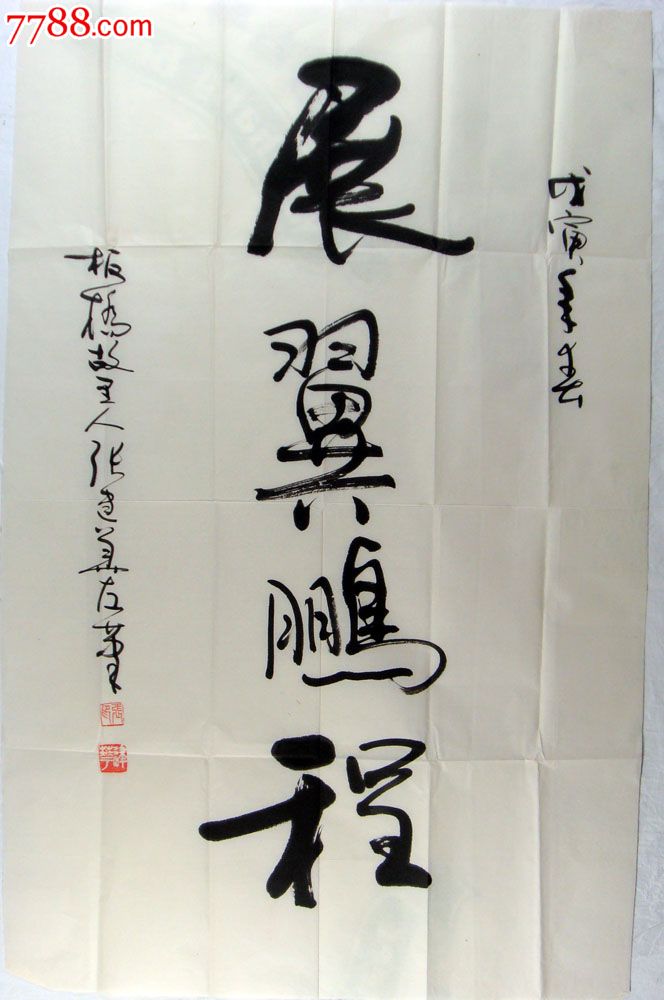 7788.com
戊寅年春
展翼鹏程
板橋故里人张建华左筆